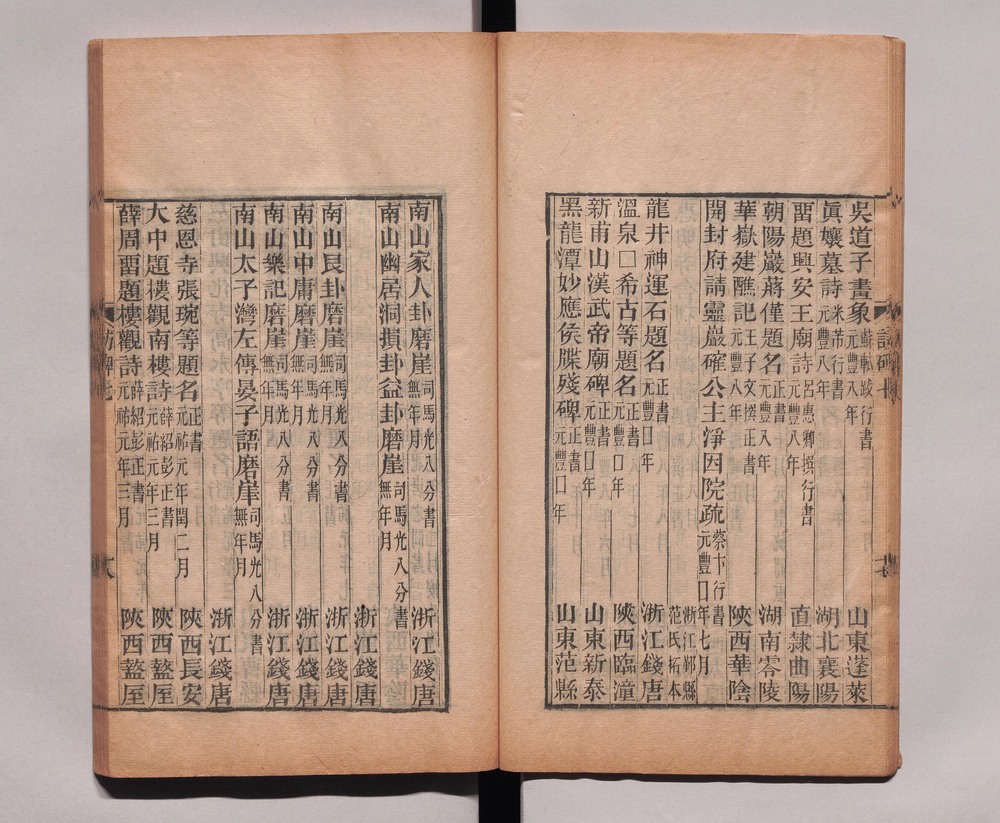 吳道子畫象蘇軾跋行書元豐八年 山東蓬萊
眞孃墓詩米芾行書元豐八年 湖北襄陽
畱題興安王廟詩呂惠卿撰行書元豐八年 直隸曲陽
朝陽巖蔣僅題名正書元豐八年 湖南零陵
華嶽建醮記王子文撰正書元豐八年 陝西華陰
開封府請靈巖確公主淨因院疏蔡卞行書元豐囗年七月 浙江鄞縣范氏拓本
龍井神運石題名正書元豐囗年 浙江錢唐
溫泉囗希古等題名正書元豐囗年 陝西臨潼
新甫山漢武帝廟碑正書元豐囗年 山東新泰
黑龍潭妙應侯牒殘碑正書元豐囗年 山東范縣
南山家人卦磨崖司馬光八分書無年月 浙江錢唐
南山幽居洞損卦益卦磨崖司馬光八分書無年月
浙江錢唐
南山艮卦磨崖司馬光八分書無年月 浙江錢唐
南山中庸磨崖司馬光八分書無年月 浙江錢唐
南山樂記磨崖司馬光八分書無年月 浙江錢唐
南山太子灣左傳晏子語磨崖司馬光八分書無年月
浙江錢唐
慈恩寺張琬等題名正書元祐元年閏二月 陝西長安
大中題樓觀南樓詩薛紹彭正書元祐元年三月 陝西盩厔
薛周畱題樓觀詩薛紹彭正書元祐元年三月 陝西盩厔